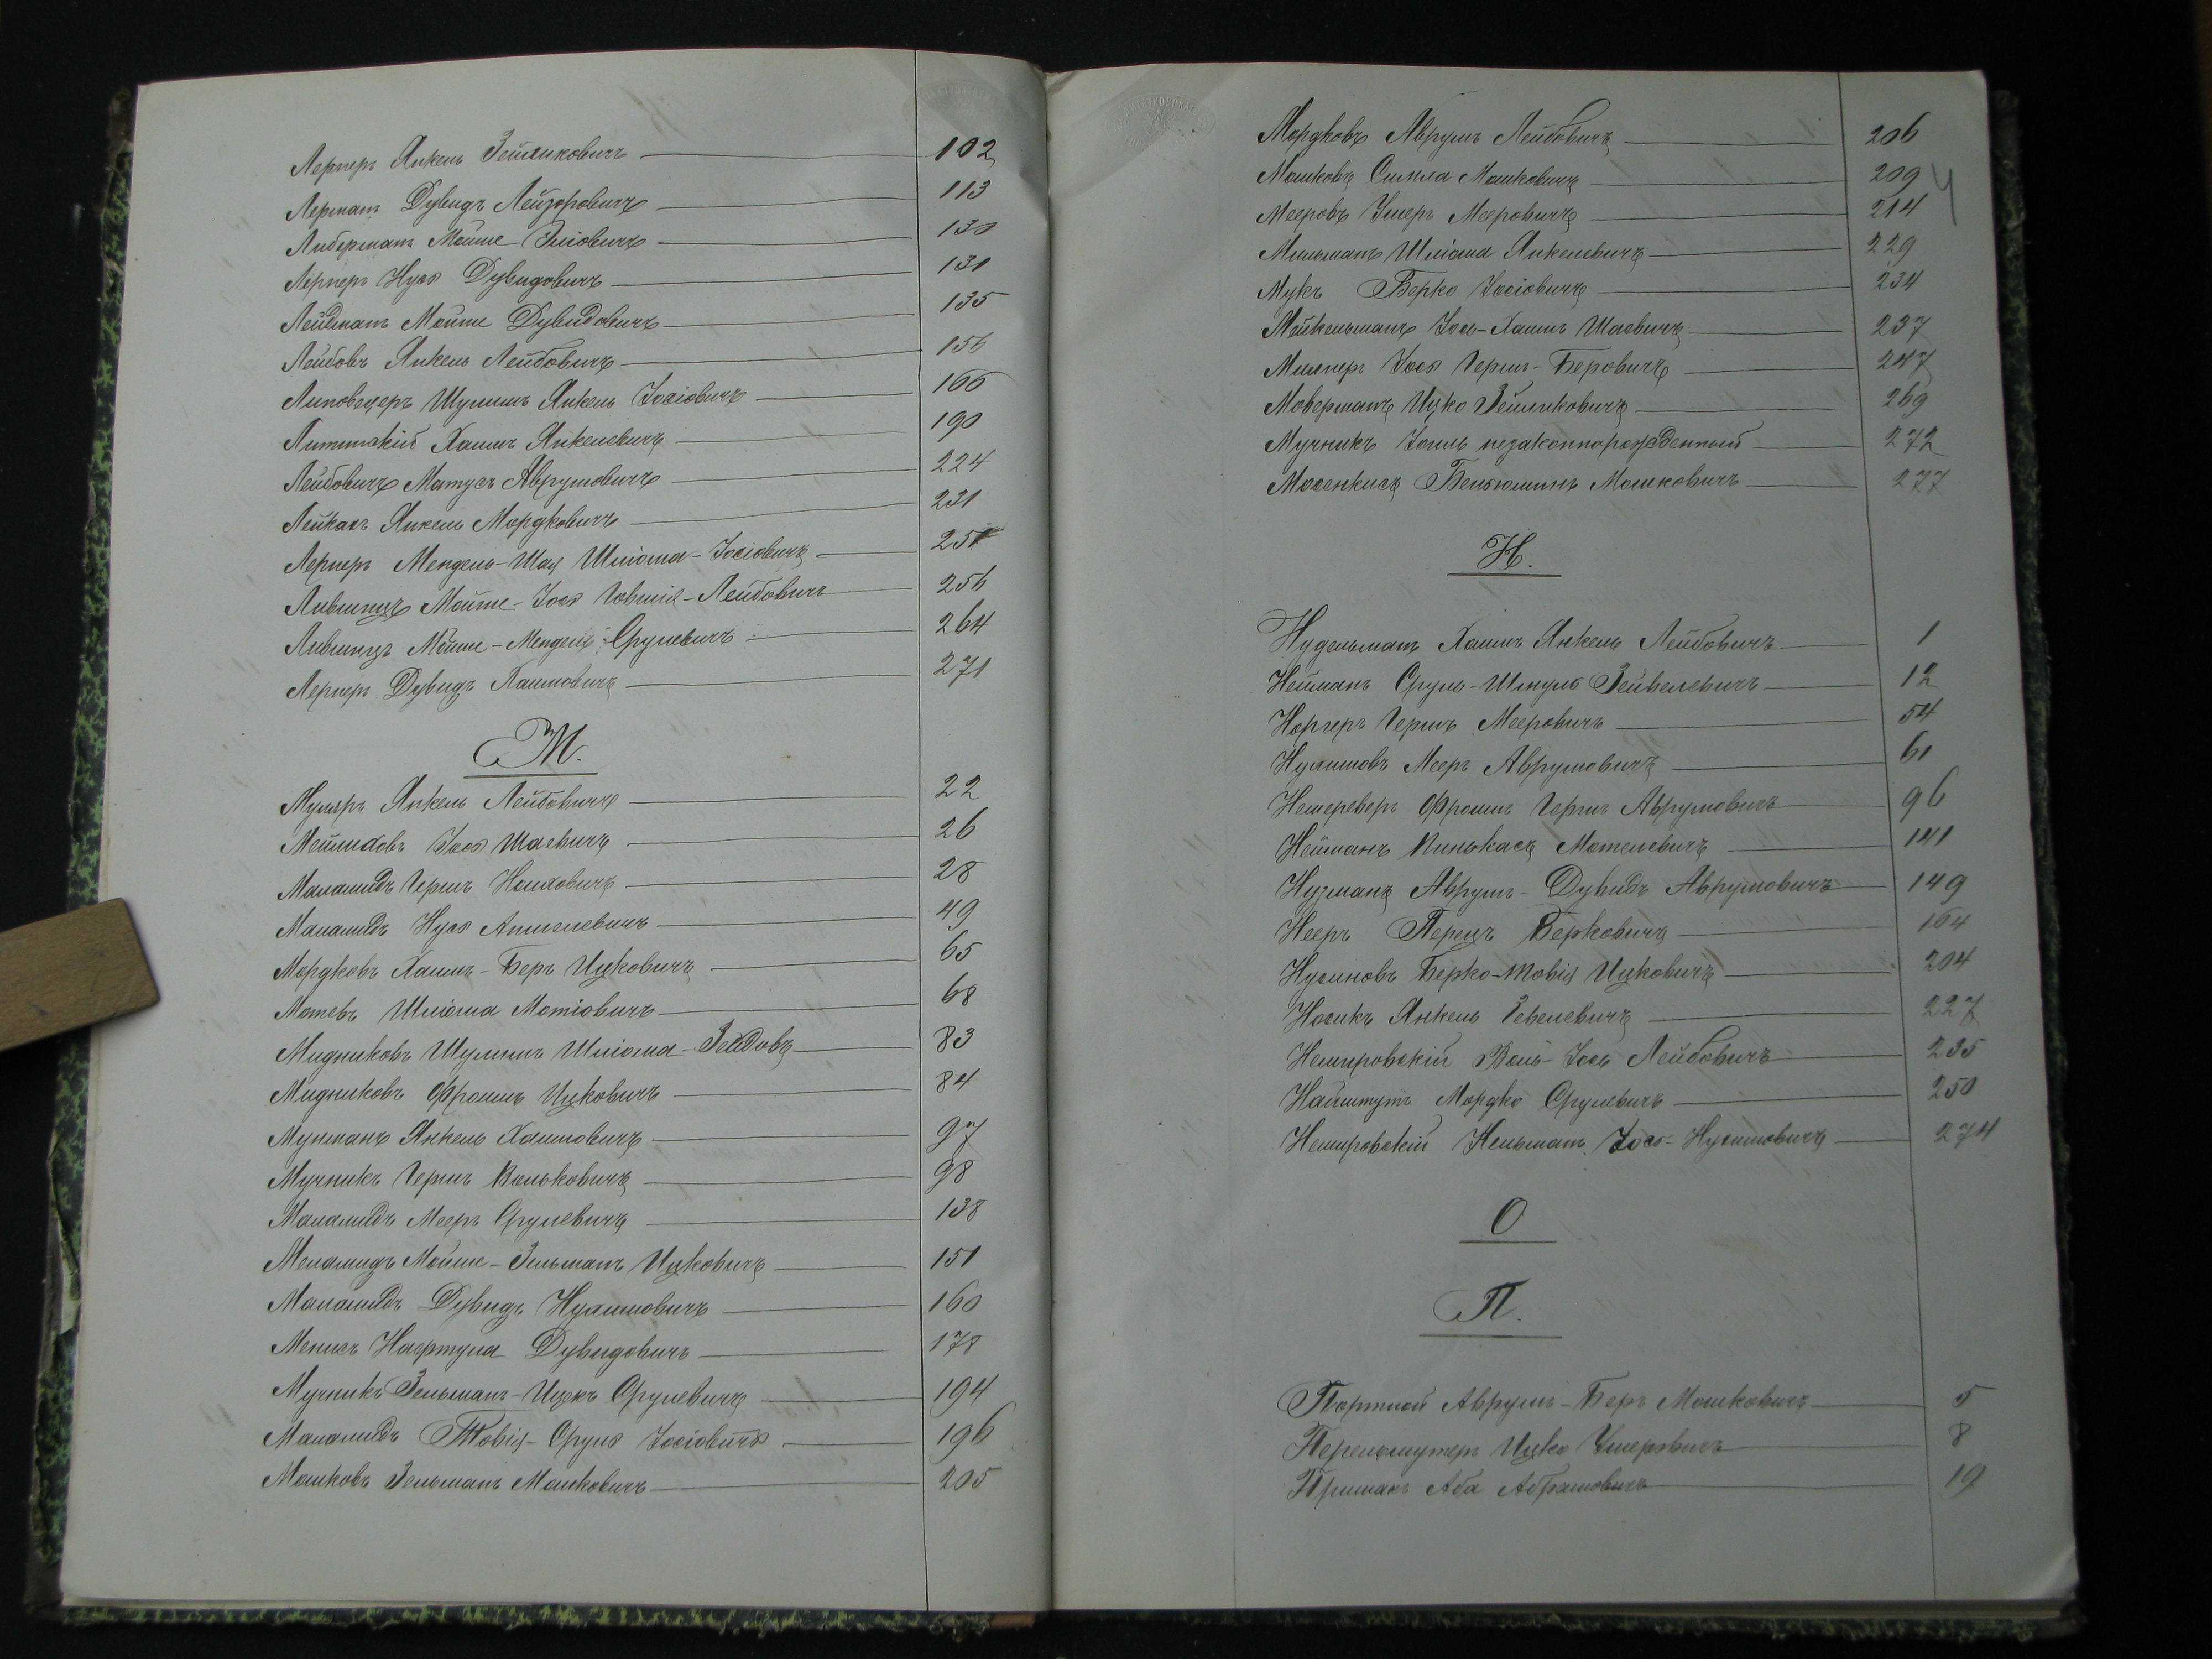 Лернеръ Янкель Зейликовичъ 102
Лерманъ Дувидъ Лейзоровичъ 113
Либерманъ Мойше Эліовичъ 130
Лернеръ Нусъ Дувидовичъ 131
Лейдманъ Мойше Дувидовичъ 135
Лейбовъ Янкель Лейбовичъ 156
Липовецеръ Шулимъ Янкель Іосіовичъ 166
Литинскій Хаимъ Янкелевичъ 190
Лейбовичъ Матусъ Аврумовичъ 224
Лейкахъ Янкель Мордковичъ 231
Лернеръ Мендель-Шая Шліома-Іосіовичъ 251
Лившицъ Мойше-Іось Говшіе-Лейбовичъ 256
Лившицъ Мойше-Мендель Срулевичъ 264
Лернеръ Дувидъ Хаимовичъ 271
М.
Муляръ Янкель Лейбовичъ 22
Мейлиховъ Іось Шаевичъ 26
Маламидъ Гершъ Ноиховичъ 28
Маламидъ Нусъ Аншелевичъ 49
Мордковъ Хаимъ-Беръ Ицковичъ 65
Мотевъ Шліома Мотіовичъ 68
Мидниковъ Шулимъ Шліома-Зейдовъ 83
Мидниковъ Фроимъ Ицковичъ 84
Мунманъ Янкель Хаимовичъ 97
Мучникъ Гершъ Вольковичъ 98
Маламидъ Мееръ Срулевичъ 138
Меламидъ Мойше-Зельманъ Ицковичъ 151
Маламидъ Дувидъ Нухимовичъ 160
Менисъ Нафтула Дувидовичъ 178
Мучникъ Зельманъ-Ицекъ Срулевичъ 194
Маламидъ Товія-Сруль Іосіовичъ 196
Мошковъ Зельманъ Мошковичъ 205
Мордковъ Аврумъ Лейбовичъ 206
Мошковъ Симха Мошковичъ 209
Мееровъ Умеръ Мееровичъ 214
Мильманъ Шліома Янкелевичъ 229
Мукъ Берко Іосіовичъ 234
Мейкельманъ Іось-Хаимъ Шаевичъ 237
Милнеръ Іось Гершъ-Беровичъ 247
Моверманъ Ицко Зейликовичъ 269
Мучникъ Іоиль незаконнорожденный 272
Мосенкисъ Беньюминъ Мошковичъ 277
Н.
Нудельманъ Хаимъ Янкель Лейбовичъ 1
Нейманъ Сруль-Шмуль Зейвелевичъ 12
Норгеръ Гершъ Мееровичъ 54
Нухимовъ Мееръ Аврумовичъ 61
Нешереверъ Фроимъ Гершъ Аврумовичъ 96
Нейманъ Пинькасъ Мотелевичъ 141
Нузманъ Аврумъ-Дувидъ Аврумовичъ 149
Нееръ Перецъ Берковичъ 164
Нусиновъ Берко-Товія Ицковичъ 204
Носикъ Янкель Гевелевичъ 227
Немировскій Воль-Іось Лейбовичъ 235
Найштутъ Мордко Срулевичъ 250
Немировскій Кельманъ Іось-Нусимовичъ 274
О
П.
Портной Аврумъ-Беръ Мошковичъ 5
Перельмутеръ Ицко Умеровичъ 8
Примакъ Аба Абрамовичъ 19